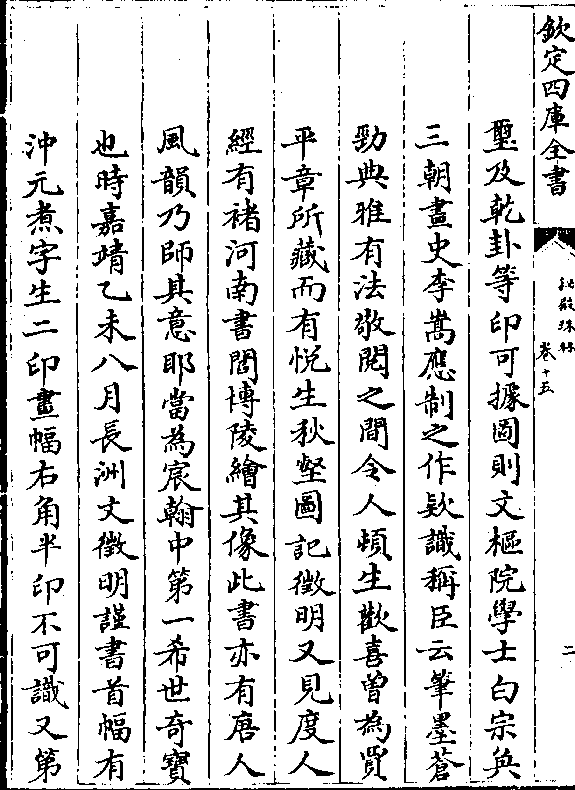 欽定四庫全書
秘殿珠林
卷十五
二
璽及乾卦等印可據圖則文樞院學士白宗英
三朝畫史李嵩應制之作欵識稱臣云筆墨蒼
勁典雅有法敬閱之間令人頓生歡喜曾為賈
平章所藏而有悦生秋壑圖記徵明又見度人
經有褚河南書閻博陵繪其像此書亦有唐人
風韻乃師其意耶當為宸翰中第一希世奇寶
也時嘉靖乙未八月長洲文徵明謹書首幅有
沖元煮字生二印畫幅右角半印不可識又第